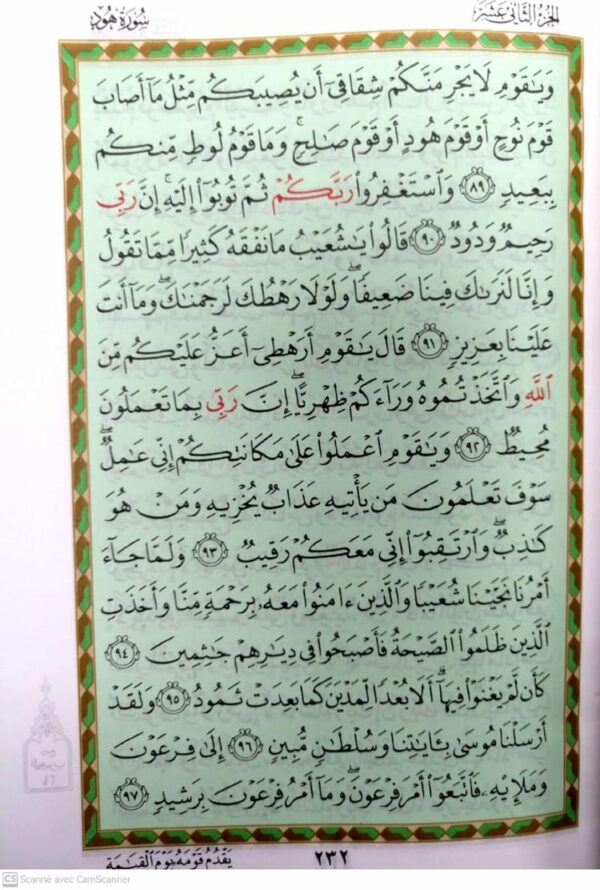 الجزء الثاني عشر
سورة هود
وَيَٰقَوْمِ لَا يَجْرِمَنَّكُمْ شِقَاقِىٓ أَن يُصِيبَكُم مِّثْلُ مَآ أَصَابَ
قَوْمَ نُوحٍ أَوْ قَوْمَ هُودٍ أَوْ قَوْمَ صَٰلِحٍۚ وَمَا قَوْمُ لُوطٍ مِّنكُم
بِبَعِيدٍ ٨٩ وَٱسْتَغْفِرُوا۟ رَبَّكُمْ ثُمَّ تُوبُوٓا۟ إِلَيْهِۚ إِنَّ رَبِّى
رَحِيمٌ وَدُودٌ ٩٠ قَالُوا۟ يَٰشُعَيْبُ مَا نَفْقَهُ كَثِيرًا مِّمَّا تَقُولُ
وَإِنَّا لَنَرَىٰكَ فِينَا ضَعِيفًاۖ وَلَوْلَا رَهْطُكَ لَرَجَمْنَٰكَۖ وَمَآ أَنتَ
عَلَيْنَا بِعَزِيزٍ ٩١ قَالَ يَٰقَوْمِ أَرَهْطِىٓ أَعَزُّ عَلَيْكُم مِّنَ
ٱللَّهِ وَٱتَّخَذْتُمُوهُ وَرَآءَكُمْ ظِهْرِيًّاۖ إِنَّ رَبِّى بِمَا تَعْمَلُونَ
مُحِيطٌ ٩٢ وَيَٰقَوْمِ ٱعْمَلُوا۟ عَلَىٰ مَكَانَتِكُمْ إِنِّى عَٰمِلٌۖ
سَوْفَ تَعْلَمُونَ مَن يَأْتِيهِ عَذَابٌ يُخْزِيهِ وَمَنْ هُوَ
كَٰذِبٌۖ وَٱرْتَقِبُوٓا۟ إِنِّى مَعَكُمْ رَقِيبٌ ٩٣ وَلَمَّا جَآءَ
أَمْرُنَا نَجَّيْنَا شُعَيْبًا وَٱلَّذِينَ ءَامَنُوا۟ مَعَهُۥ بِرَحْمَةٍ مِّنَّا وَأَخَذَتِ
ٱلَّذِينَ ظَلَمُوا۟ ٱلصَّيْحَةُ فَأَصْبَحُوا۟ فِى دِيَٰرِهِمْ جَٰثِمِينَ ٩٤
كَأَن لَّمْ يَغْنَوْا۟ فِيهَآۗ أَلَا بُعْدًا لِّمَدْيَنَ كَمَا بَعِدَتْ ثَمُودُ ٩٥ وَلَقَدْ
أَرْسَلْنَا مُوسَىٰ بِـَٔايَٰتِنَا وَسُلْطَٰنٍ مُّبِينٍ ٩٦ إِلَىٰ فِرْعَوْنَ
وَمَلَإِي۟هِۦ فَٱتَّبَعُوٓا۟ أَمْرَ فِرْعَوْنَۖ وَمَآ أَمْرُ فِرْعَوْنَ بِرَشِيدٍ ٩٧
٢٣٢
يَقْدُمُ قَوْمَهُ يَوْمَ الْقِيَامَة
CS Scanné avec CamScanner